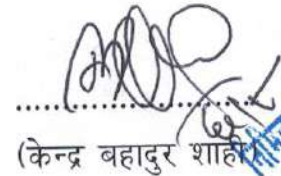 ....................
(केन्द्र बहादुर शाही)